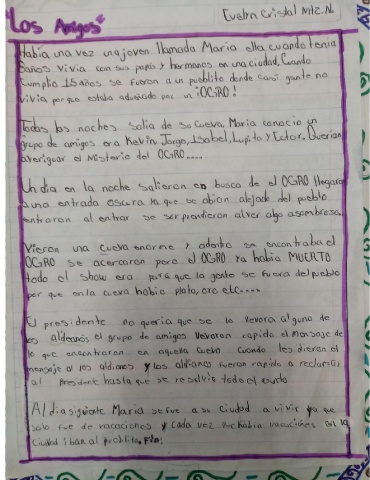 "Los Amigos"
Evelyn Cristal Mtz. N.
Había una vez una joven llamada Maria ella cuando tenia
años vivia con sus papás y hermanos en una ciudad, Cuando
cumplio 15 años se fueron a un pueblito donde casi gente no
vivia porque estaba adueñado por un ¡OGRO!
Todas las noches salia de su Cueva, Maria conocio un
grupo de amigos era Kevin, Jorge, Isabel, Lupita y Ector. Querian
averiguar el Misterio del OGRO....
Un dia en la noche salieron en busca de el OGRO llegaron
a una entrada oscura ya que se abian alejado del pueblo
entraron al entrar se sorprendieron al ver algo asombroso.
Vieron una cueva enorme y adentro se encontraba el
OGRO se acercaron pero el OGRO Ya habia MUERTO
todo el show era para que la gente se fuera del pueblo
por que en la cueva habia plata, oro etc....
El presidente no queria que se la llevara alguno de
los aldeanos el grupo de amigos llevaron rapido el mensaje de
lo que encontraron en aquella cueva cuando les dieron el
mensaje a los aldianos y los aldianos fueron rapido a reclamar
al President hasta que se resolvio todo
Al dia siguiente Maria se fue a su ciudad a vivir ya que
solo fue de vacaciones y cada vez que habia vacaciones en la
Ciudad iban al pueblito. Fin: